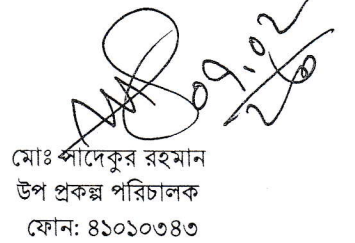 ০৭.০২
২৬
মোঃ সাদেকুর রহমান
উপ প্রকল্প পরিচালক
ফোন: ৪১০১০৩৪৩